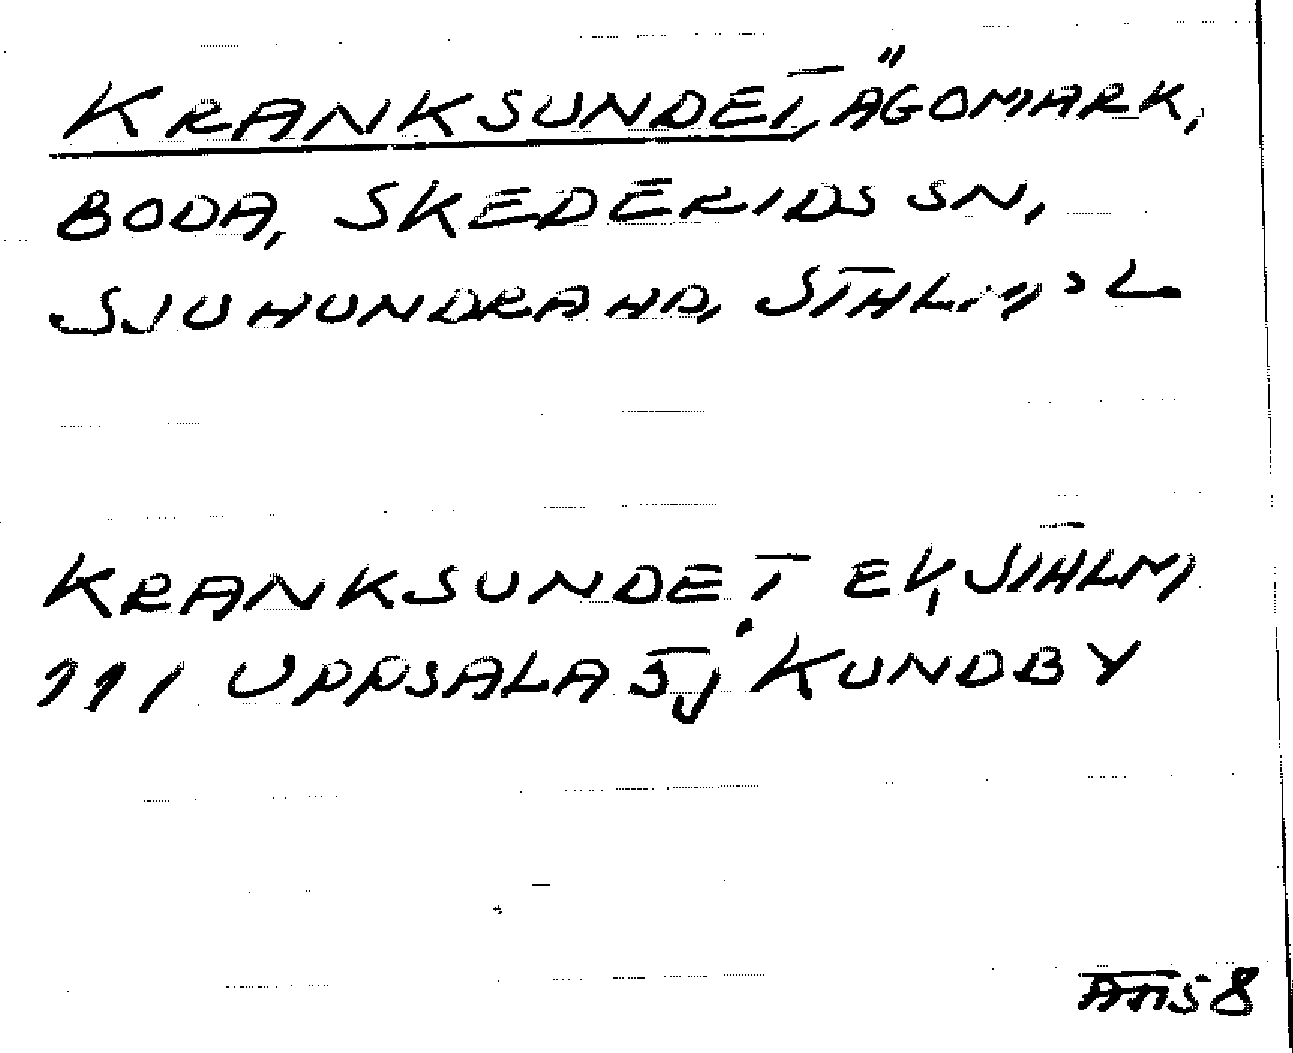 KRANKSUNDET, ÄGOMARK,
BODA, SKEDERIDS SN,
SJUHUNDRA HD, STHLMS L
KRANKSUNDET EK, STHLM
111 UPPSALA 5j KUNDBY
58